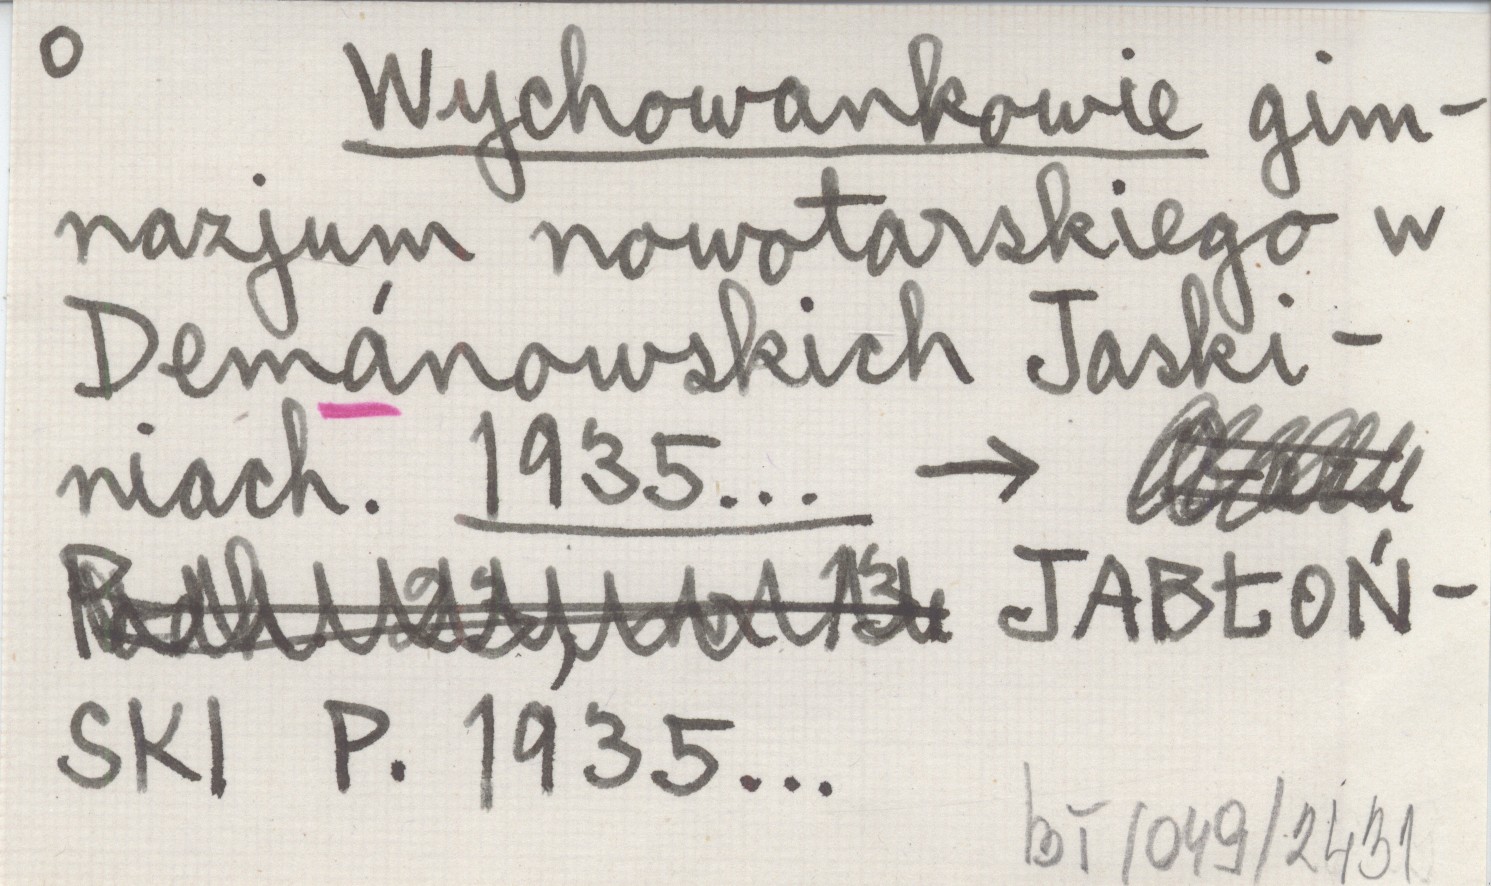 o Wychowankowie gim-
nazjum nowotarskiego w
Demánowskich Jaski-
niach. 1935... →
JABŁOŃ-
SKI P. 1935...
bT/049/2431